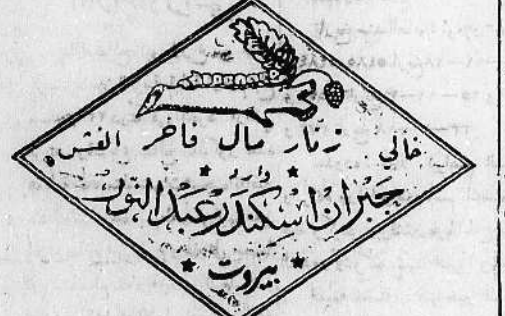 خالي زنّار مال فاخر الغش
وارد
جبران اسكندر عبد النور
بيروت